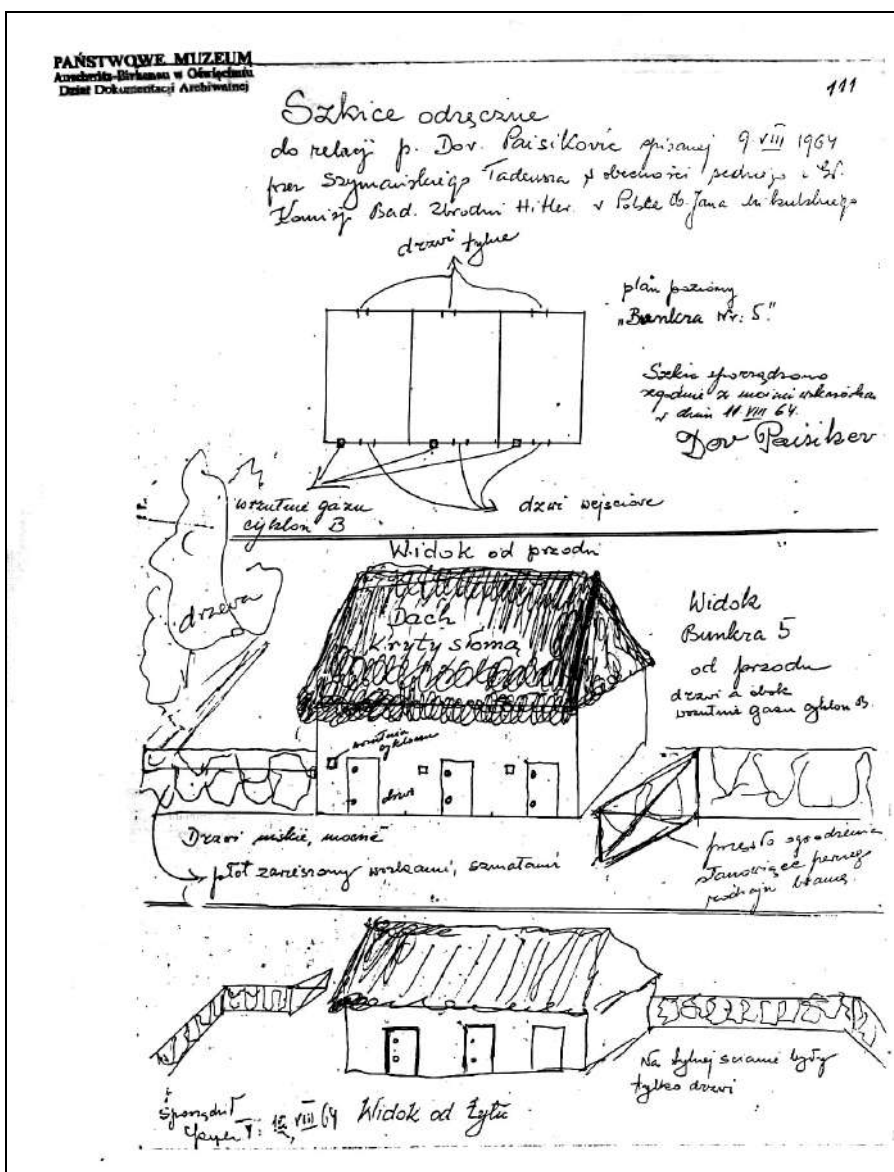 PAŃSTWOWE MUZEUM
Auschwitz-Birkenau w Oświęcimiu
Dział Dokumentacji Archiwalnej
111
Szkice odręczne
do relacji p. Dov. Paisikovic spisanej 9. VIII 1964
przez Szymańskiego Tadeusza w obecności sędziego
Komisji Bad. Zbrodni Hitler. w Polsce Jana
drzwi tylne
plan poziomy
"Bunkra Nr: 5."
Szkic sporządzono
zgodnie z moimi
w dniu 11 VIII 64.
Dov
wrzutnie gazu
cyklon B
drzwi wejściowe
Widok od przodu
drzewa
Dach
kryty słomą
Widok
Bunkra 5
od przodu
drzwi a obok
wrzutnie gazu cyklon B.
wrzutnia
cyklonu
drzwi
Drzwi niskie, mocne
płot zawieszony workami, szmatami
przęsło ogrodzenia
stanowiące pewnego
rodzaju bramę.
Na tylnej ścianie były
tylko drzwi
Sporządził
VIII 64
Widok od tyłu